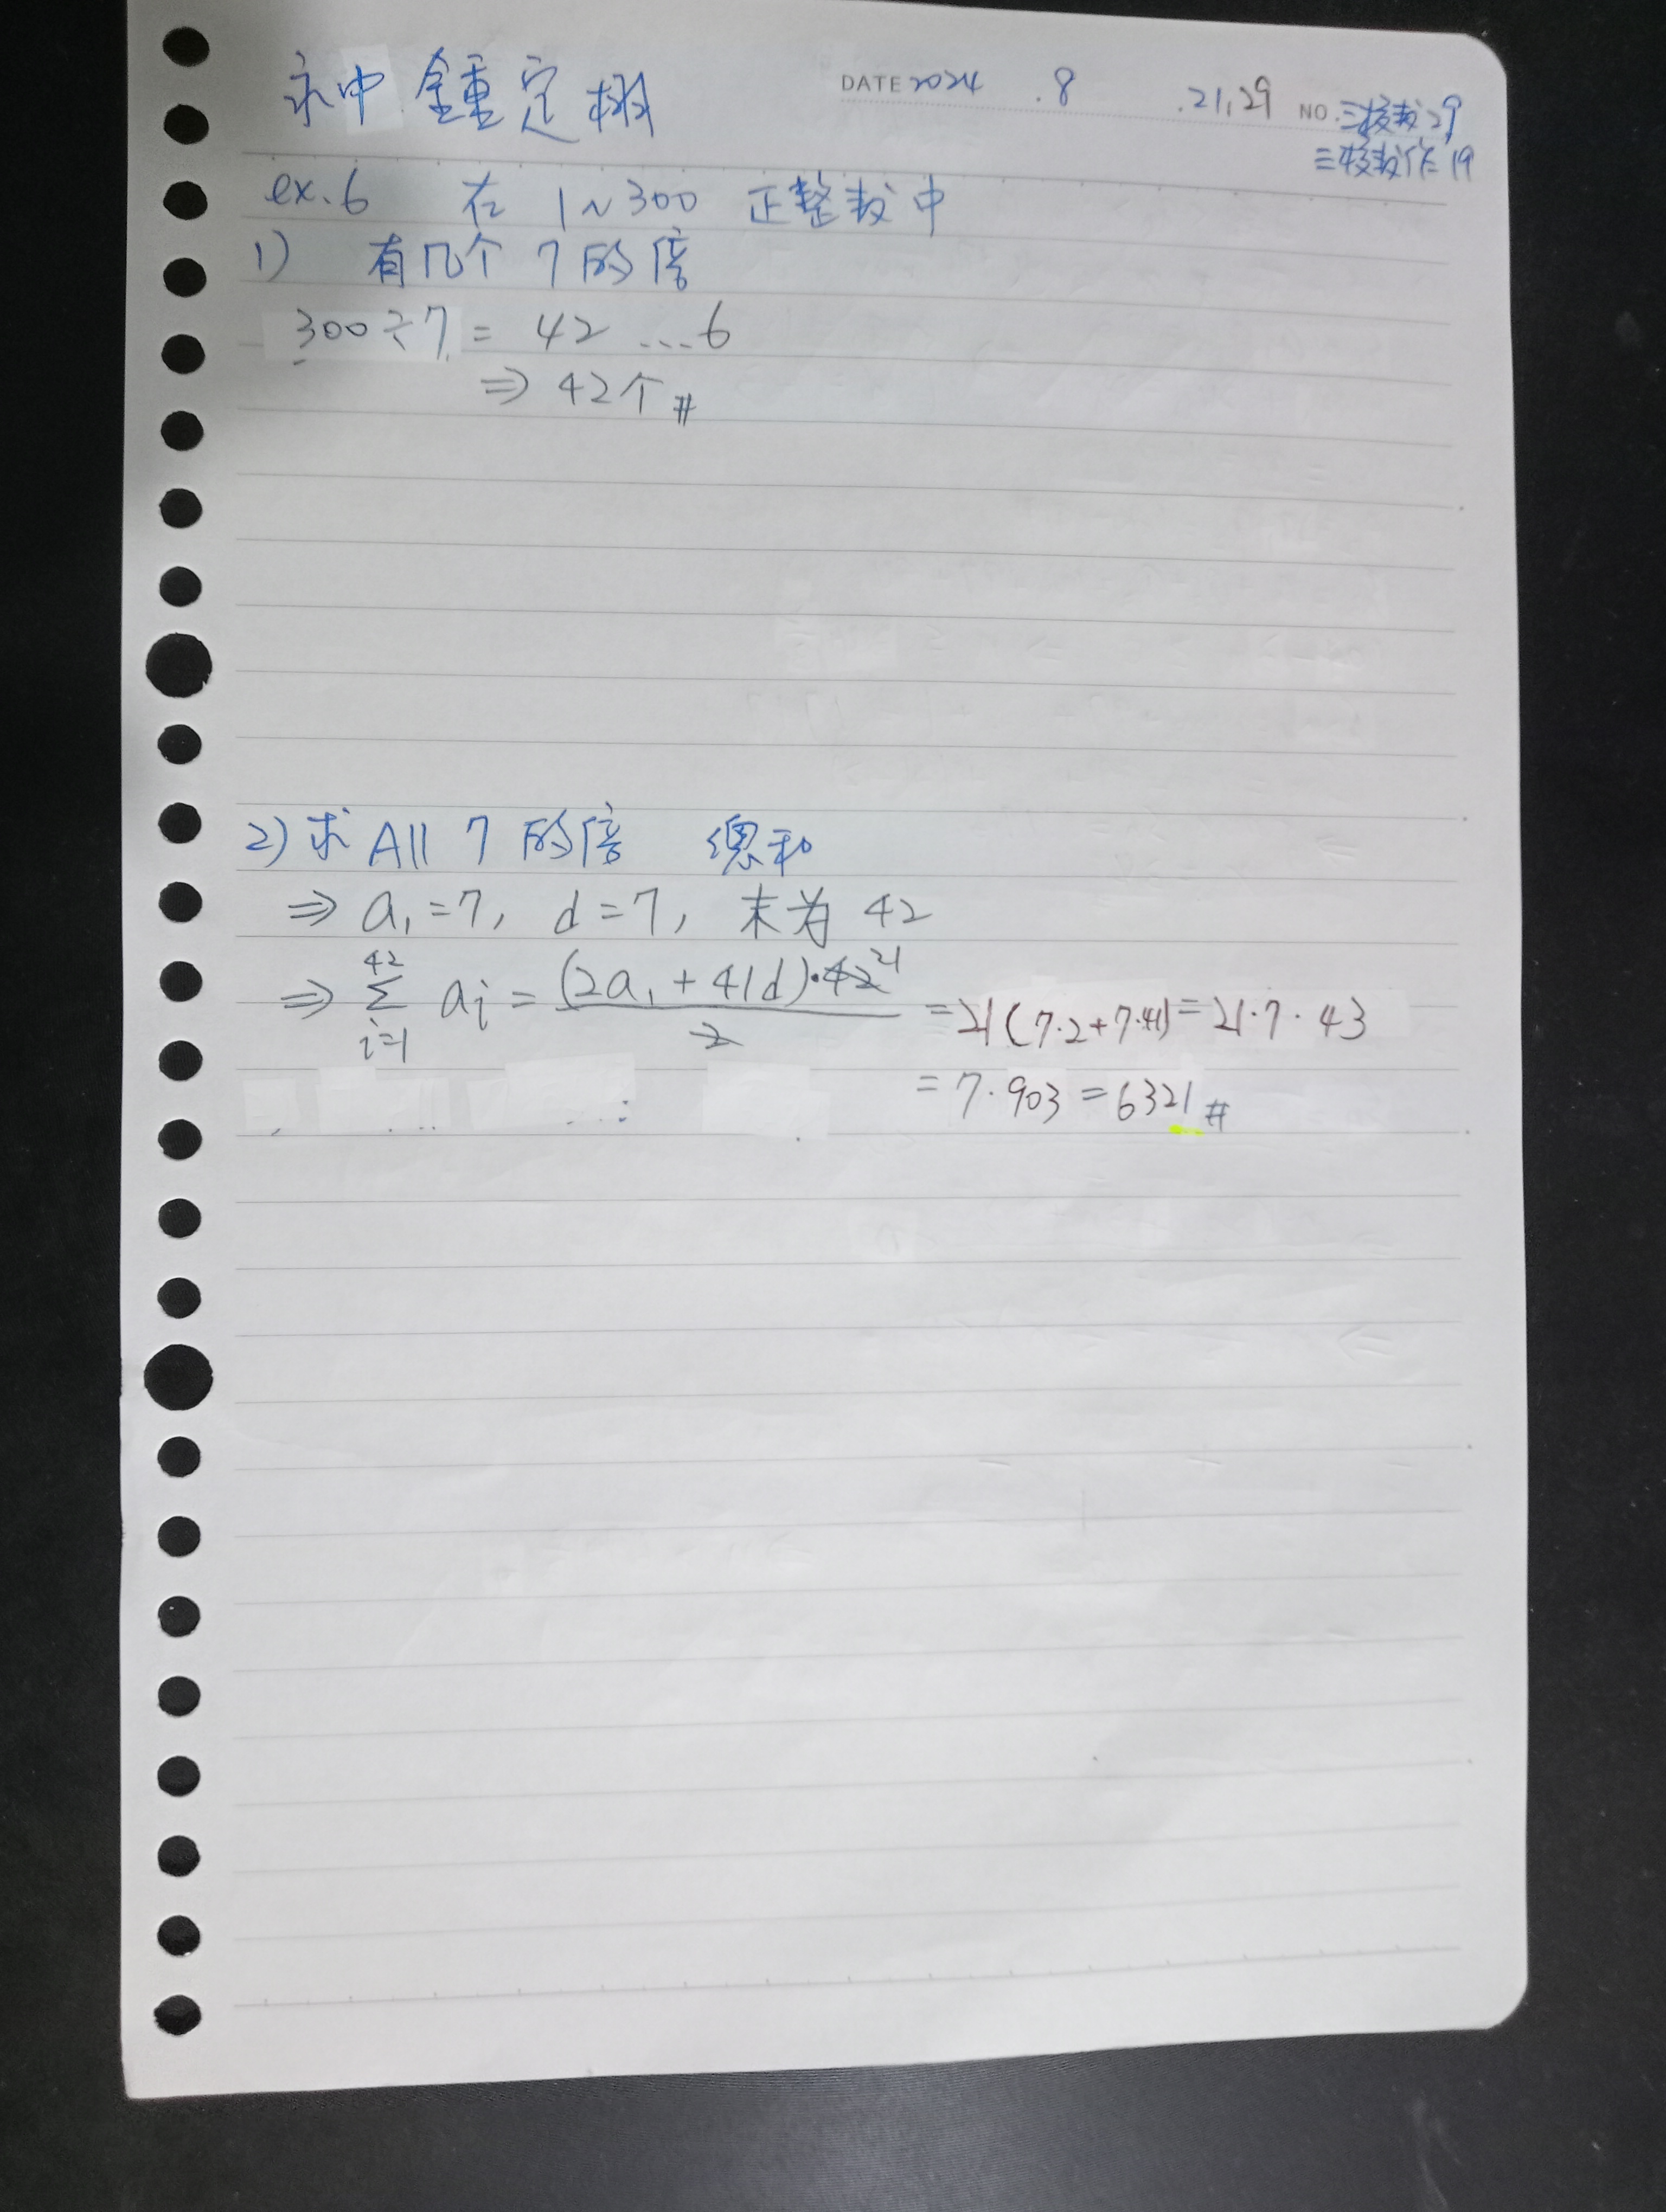 永中 鍾定樹
DATE 2024 .8 .21,29 NO. 三技教29
三技教作19
ex.6 在 1~300 正整数中
1) 有几个 7的倍
300÷7 = 42 ...6
⇒ 42个#
2) 求 All 7 的倍 總和
⇒ a₁=7, d=7, 末为 42
⇒ \sum_{i=1}^{42} ai = \frac{(2a₁+41d)·42^{21}}{2} =21(7·2+7·41)=21·7·43
= 7·903 =6321#